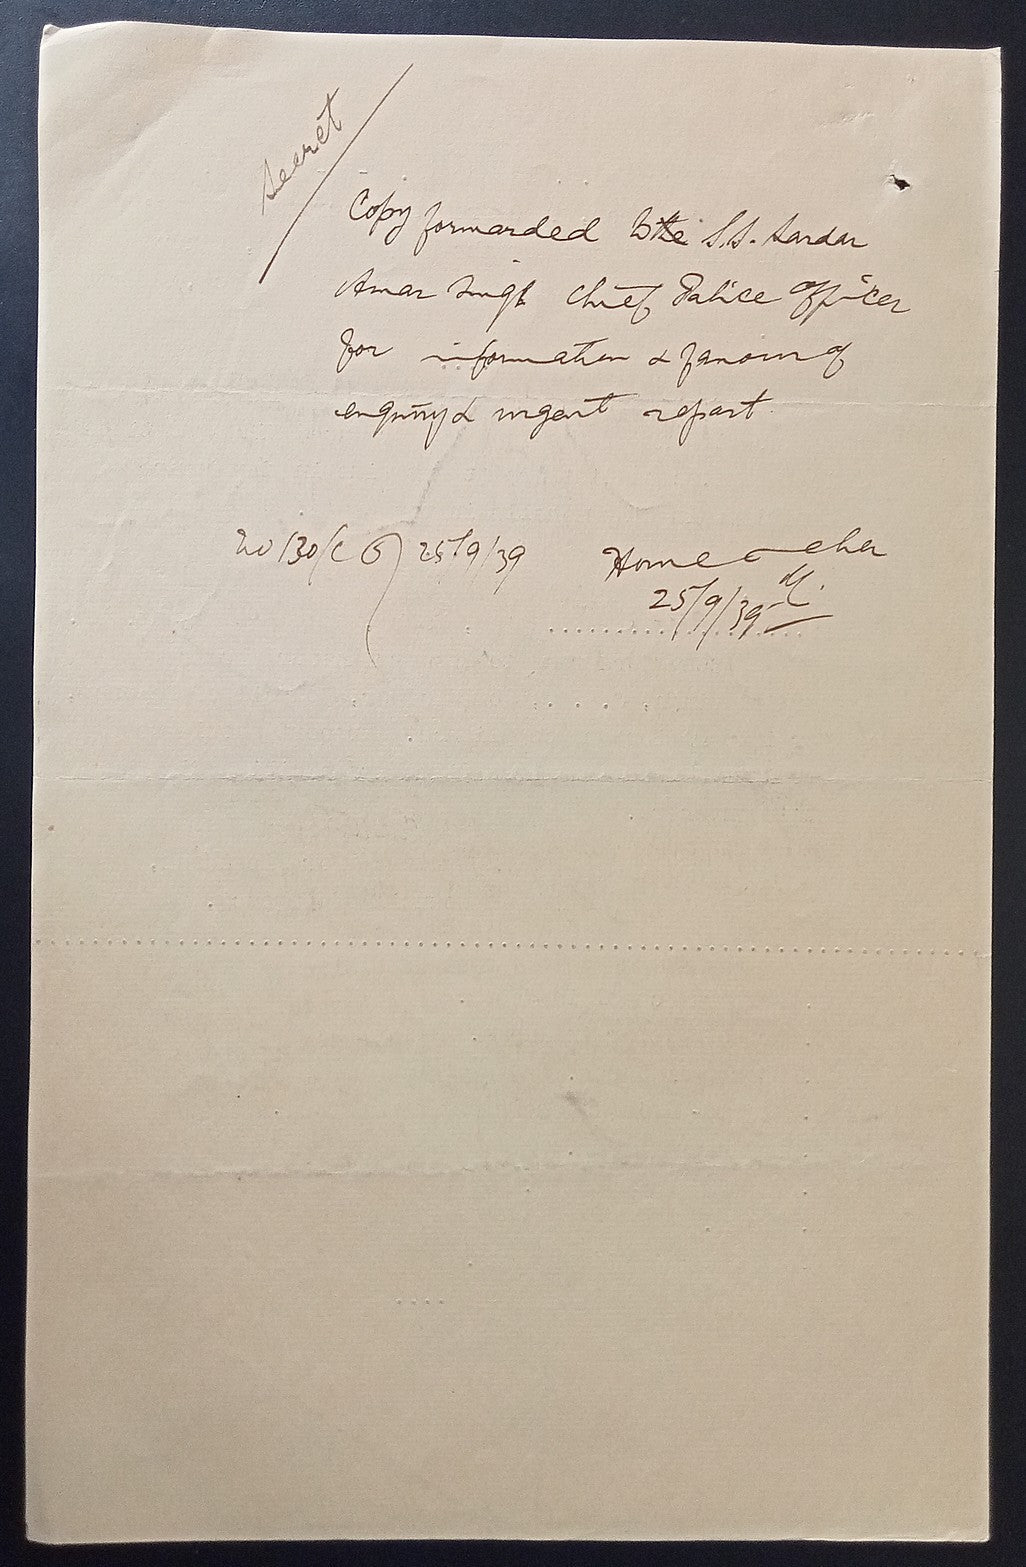 Secret
Copy forwarded to the S.S. Sardar
Amar Singh Chief Police Officer
for information & favour of
enquiry & urgent report
25/9/39 Home
25/9/39